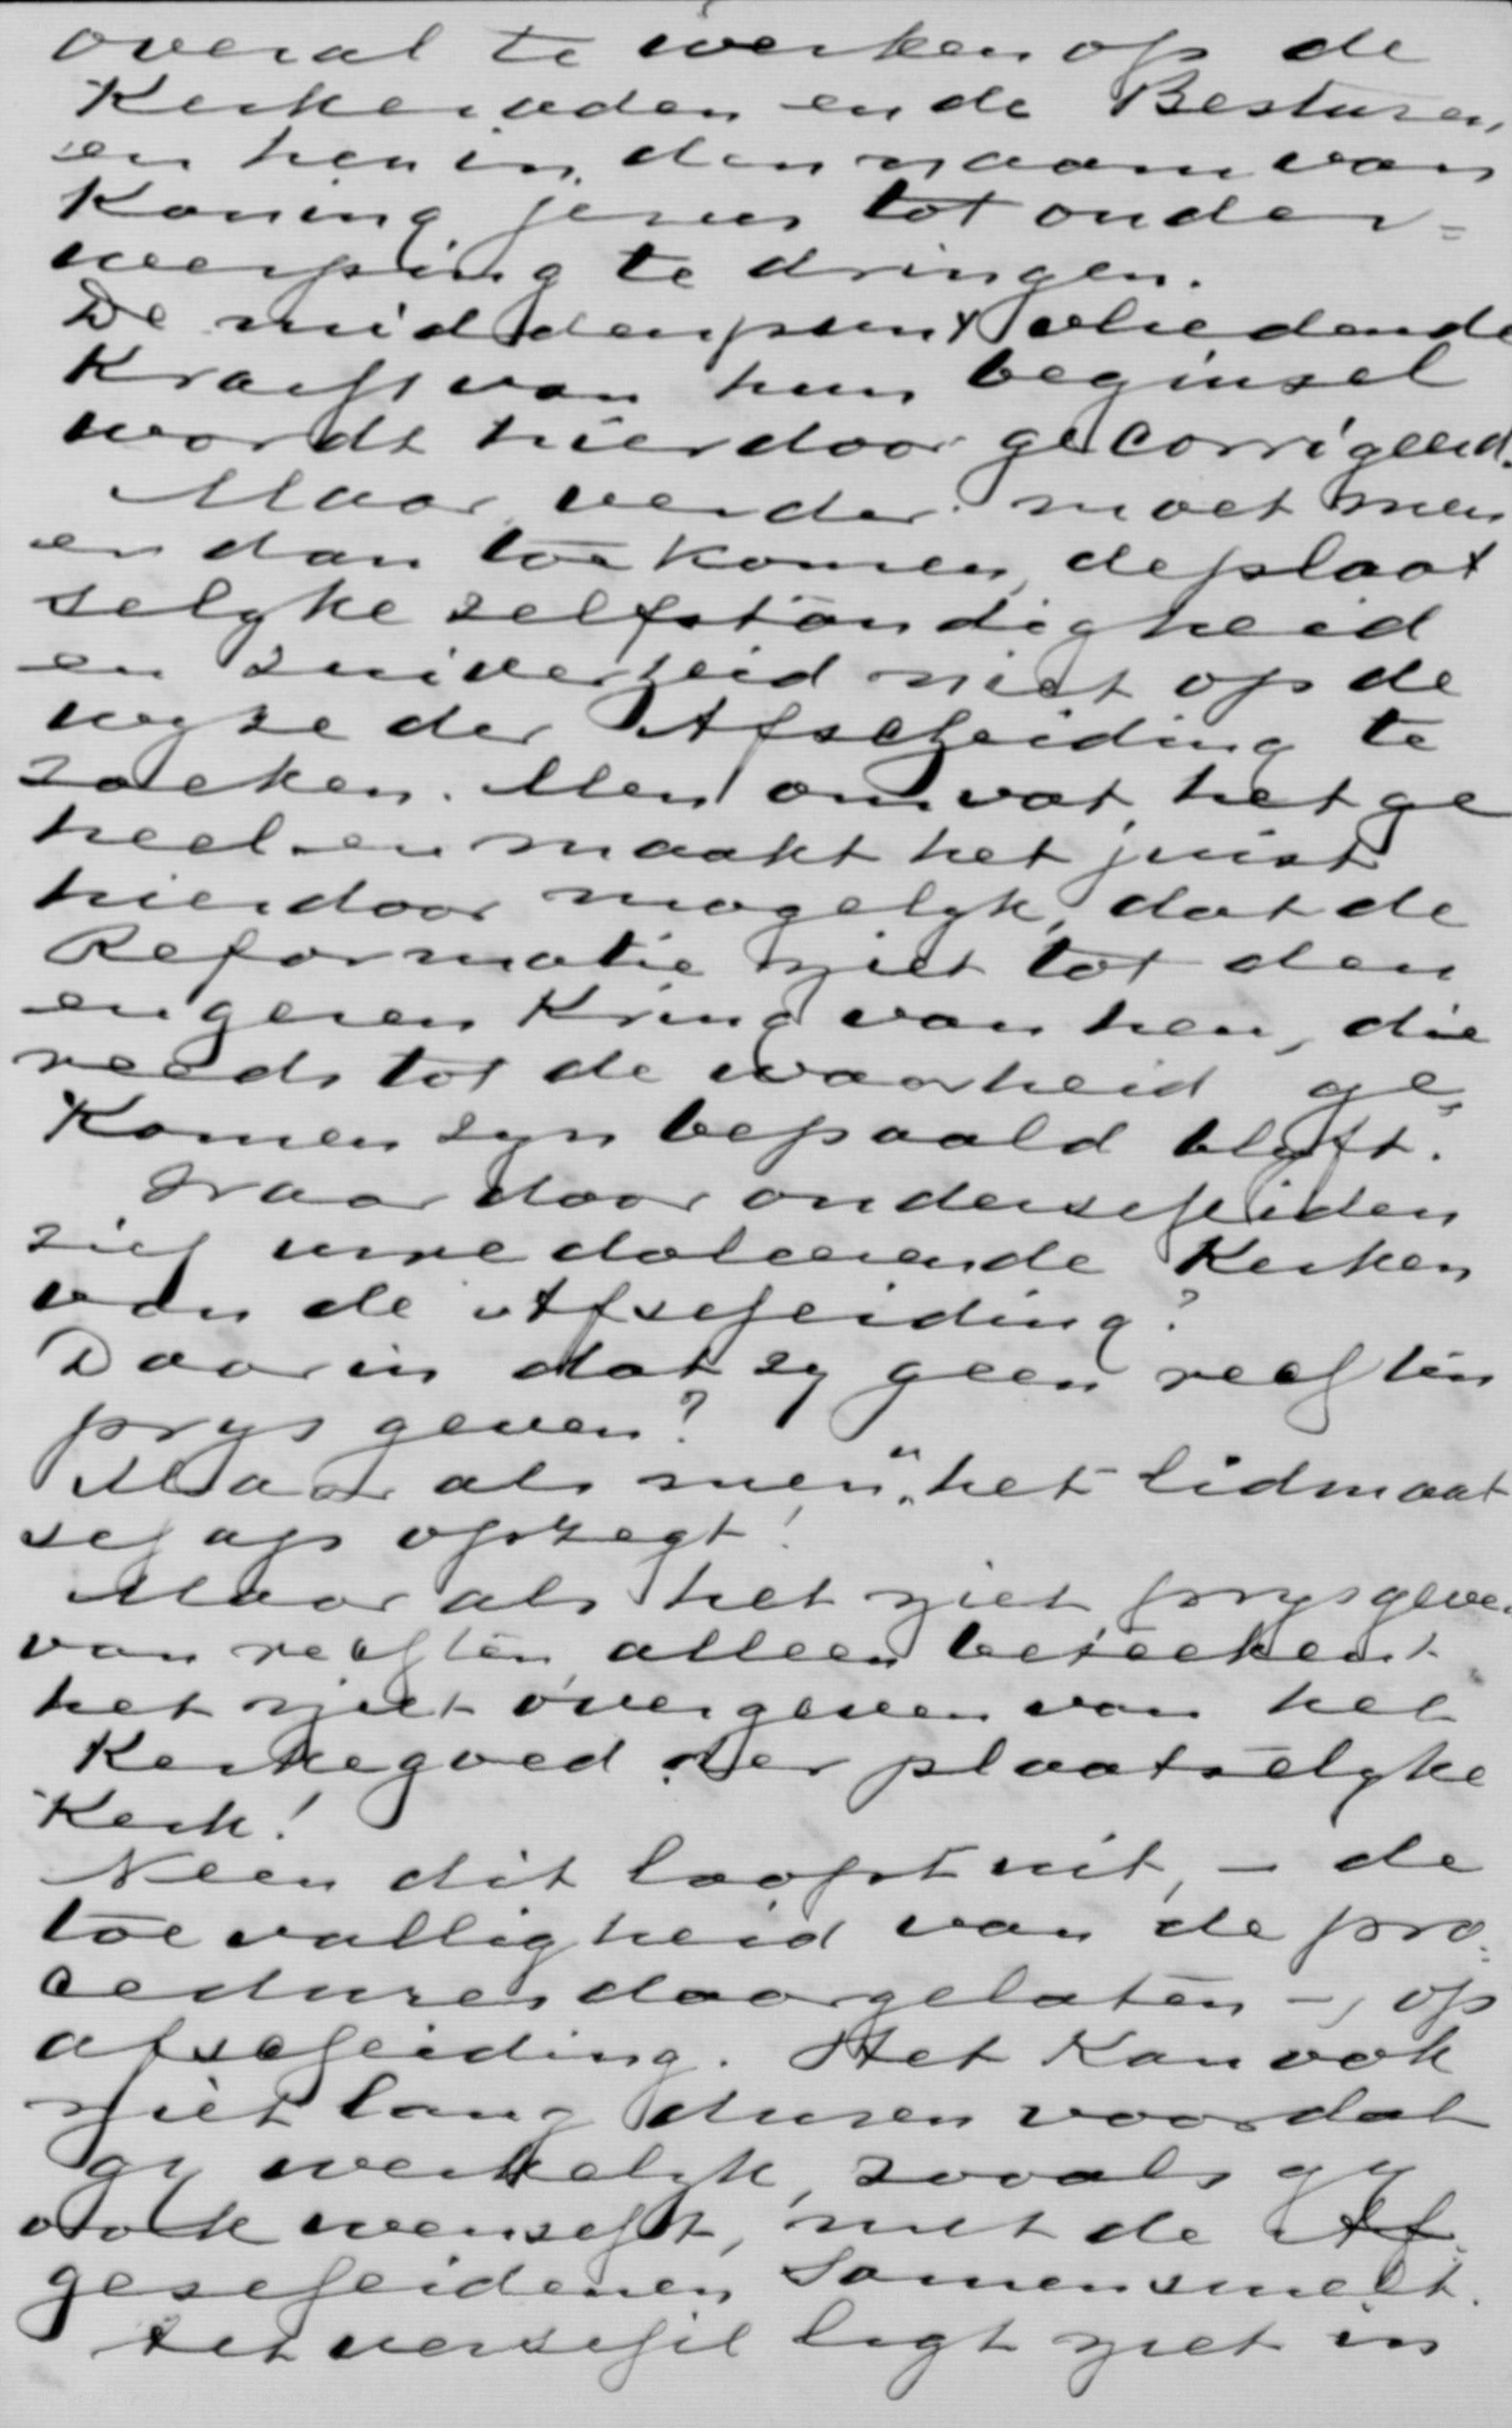 overal te werken op de
Kerkeraden en de Besturen,
en hen in den naam van
Koning Jezus tot onder=
werping te dringen.
De middenpuntvliedende
Kracht van hun beginsel
wordt hierdoor gecorrigeerd.
Maar verder moet men
er dan toe komen, de plaat
selyke zelfstandigheid
en zuiverheid niet op de
wyze der Afscheiding te
zoeken. Men omvat het ge
heel en maakt het juist
hierdoor mogelyk, dat de
Reformatie niet tot den
engeren Kring van hen, die
reeds tot de waarheid ge=
Komen zyn bepaald blyft.
Waardoor onderscheiden
zich uwe doleerende Kerken
van de Afscheiding?
Daarin dat zy geen rechten
prys geven?
Maar als men "het lidmaat
schap opzegt!
Maar als het niet prysgeve.
van rechten alleen beteekent
het niet overgeven van het
Kerkegoed der plaatselyke
Kerk!
Neen dit loopt uit, - de
toevalligheid van de pro=
cedures daargelaten -, op
afscheiding. Het Kan ook
niet lang duren voordat
gy werkelyk, zooals gy
ook wenscht, met de Af=
gescheidenen samensmelt.
Het verschil ligt niet in